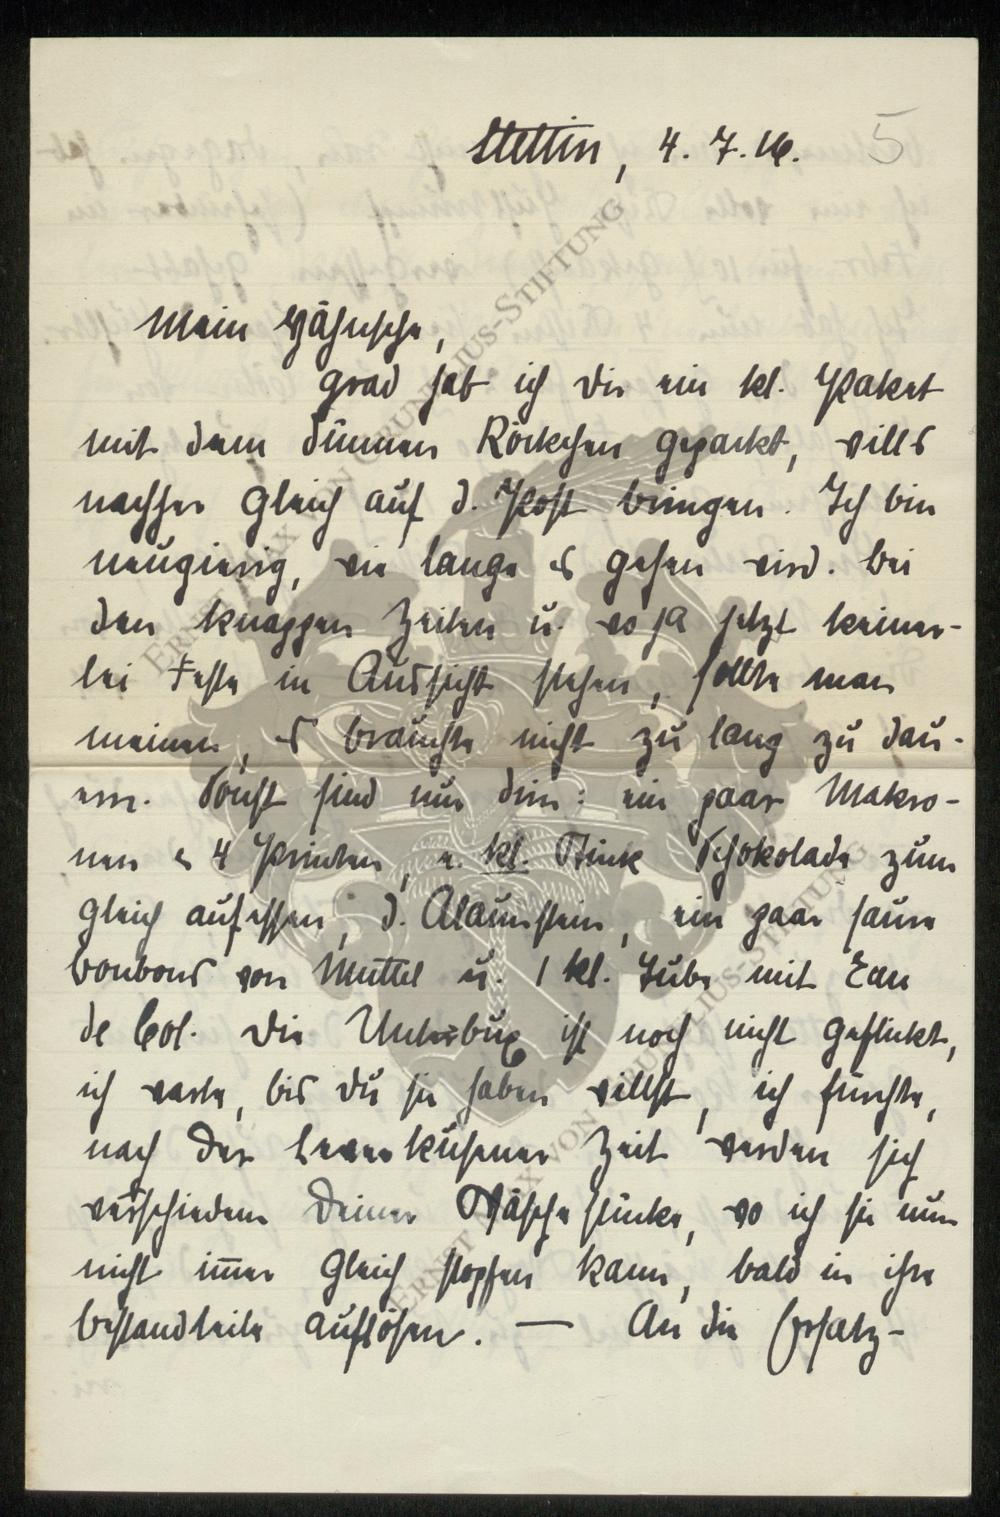 Stettin, 4. 7. 16. 5
Mein Hähnsche,
grad hab ich Dir ein kl. Paket
mit dem dünnen Röckchen gepackt, will's
nachher gleich auf d. Post bringen. Ich bin
neugierig, wie lange es gehen wird. Bei
den knappen Zeiten u. wo ja jetzt keiner-
lei Feste in Aussicht stehen, sollte man
meinen, es brauchte nicht zu lang zu dau-
ern. Sonst sind nur drin: ein paar Makro-
nen & 4 Printen, e. kl. Stück Schokolade zum
gleich aufessen, d. Alaunstein, ein paar saure
Bonbons von Muttel u. 1 kl. Tube mit Eau
de Col. Die Unterbux ist noch nicht geflickt,
ich warte, bis Du sie haben willst, ich fürchte,
nach der Leverkusener Zeit werden sich
verschiedene Deiner Wäschestücke, wo ich sie nun
nicht immer gleich stopfen kann, bald in ihre
Bestandteile auflösen. — An die Ersatz-
ERNST MAX VON GRUNELIUS-STIFTUNG
ERNST MAX VON GRUNELIUS-STIFTUNG